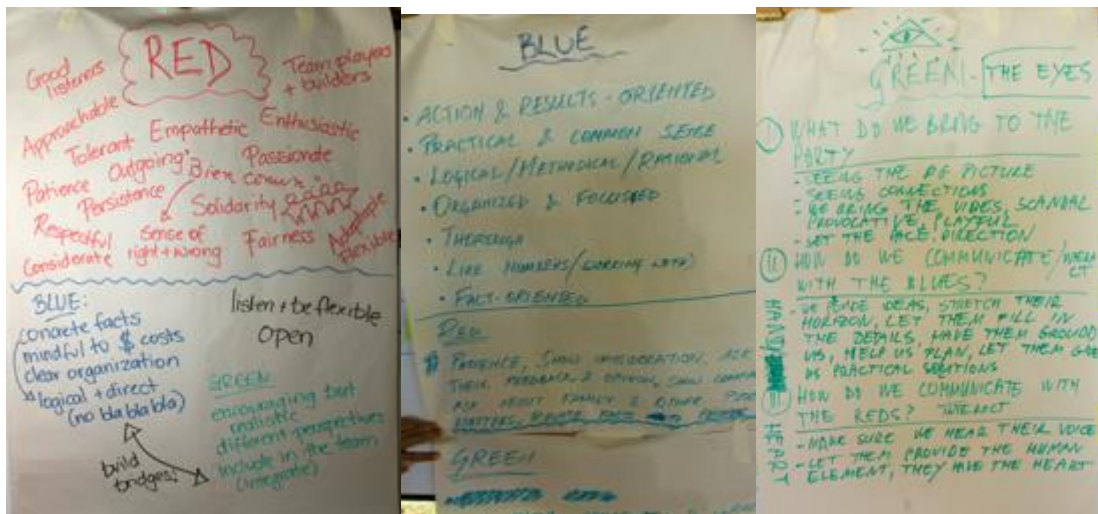 RED
Good listeners
Team players + builders
Approachable
Tolerant Empathetic Enthusiastic
Outgoing Passionate
Patience
Persistence
Solidarity
Respectful
Considerate
sense of right + wrong
Fairness
Adaptable
flexible
BLUE:
concrete facts
mindful to $ costs
clear organization
logical + direct
(no bla bla bla)
listen + be flexible
open
GREEN
encouraging but
realistic
different perspectives
include in the team
(integrate)
build
bridges!
BLUE
• ACTION & RESULTS - ORIENTED
• PRACTICAL & COMMON SENSE
• LOGICAL / METHODICAL / RATIONAL
• ORGANIZED & FOCUSED
• THOROUGH
• LIKE NUMBERS / (WORKING WITH)
• FACT-ORIENTED
RED
PATIENCE, SHOW CONSIDERATION, ASK
THEIR FEEDBACK & OPINION, SHOW
ASK ABOUT FAMILY & OTHER
MATTERS,
GREEN
GREEN - THE EYES
I WHAT DO WE BRING TO THE
PARTY
- SEEING THE BIG PICTURE
- SEEING CONNECTIONS
- WE BRING THE VIBES, SCANDAL
PROVOCATIVE, PLAYFUL
- SET THE PACE, DIRECTION
II HOW DO WE COMMUNICATE/
WITH THE BLUES?
HANDS
- WE IDEAS, STRETCH THEIR
HORIZON, LET THEM FILL IN
THE DETAILS, HAVE THEM GROUND
US, HELP US PLAN, LET THEM
US PRACTICAL SOLUTIONS
III HOW DO WE COMMUNICATE WITH
THE REDS?
HEART
- MAKE SURE WE HEAR THEIR VOICE
- LET THEM PROVIDE THE HUMAN
ELEMENT, THEY HAVE THE HEART